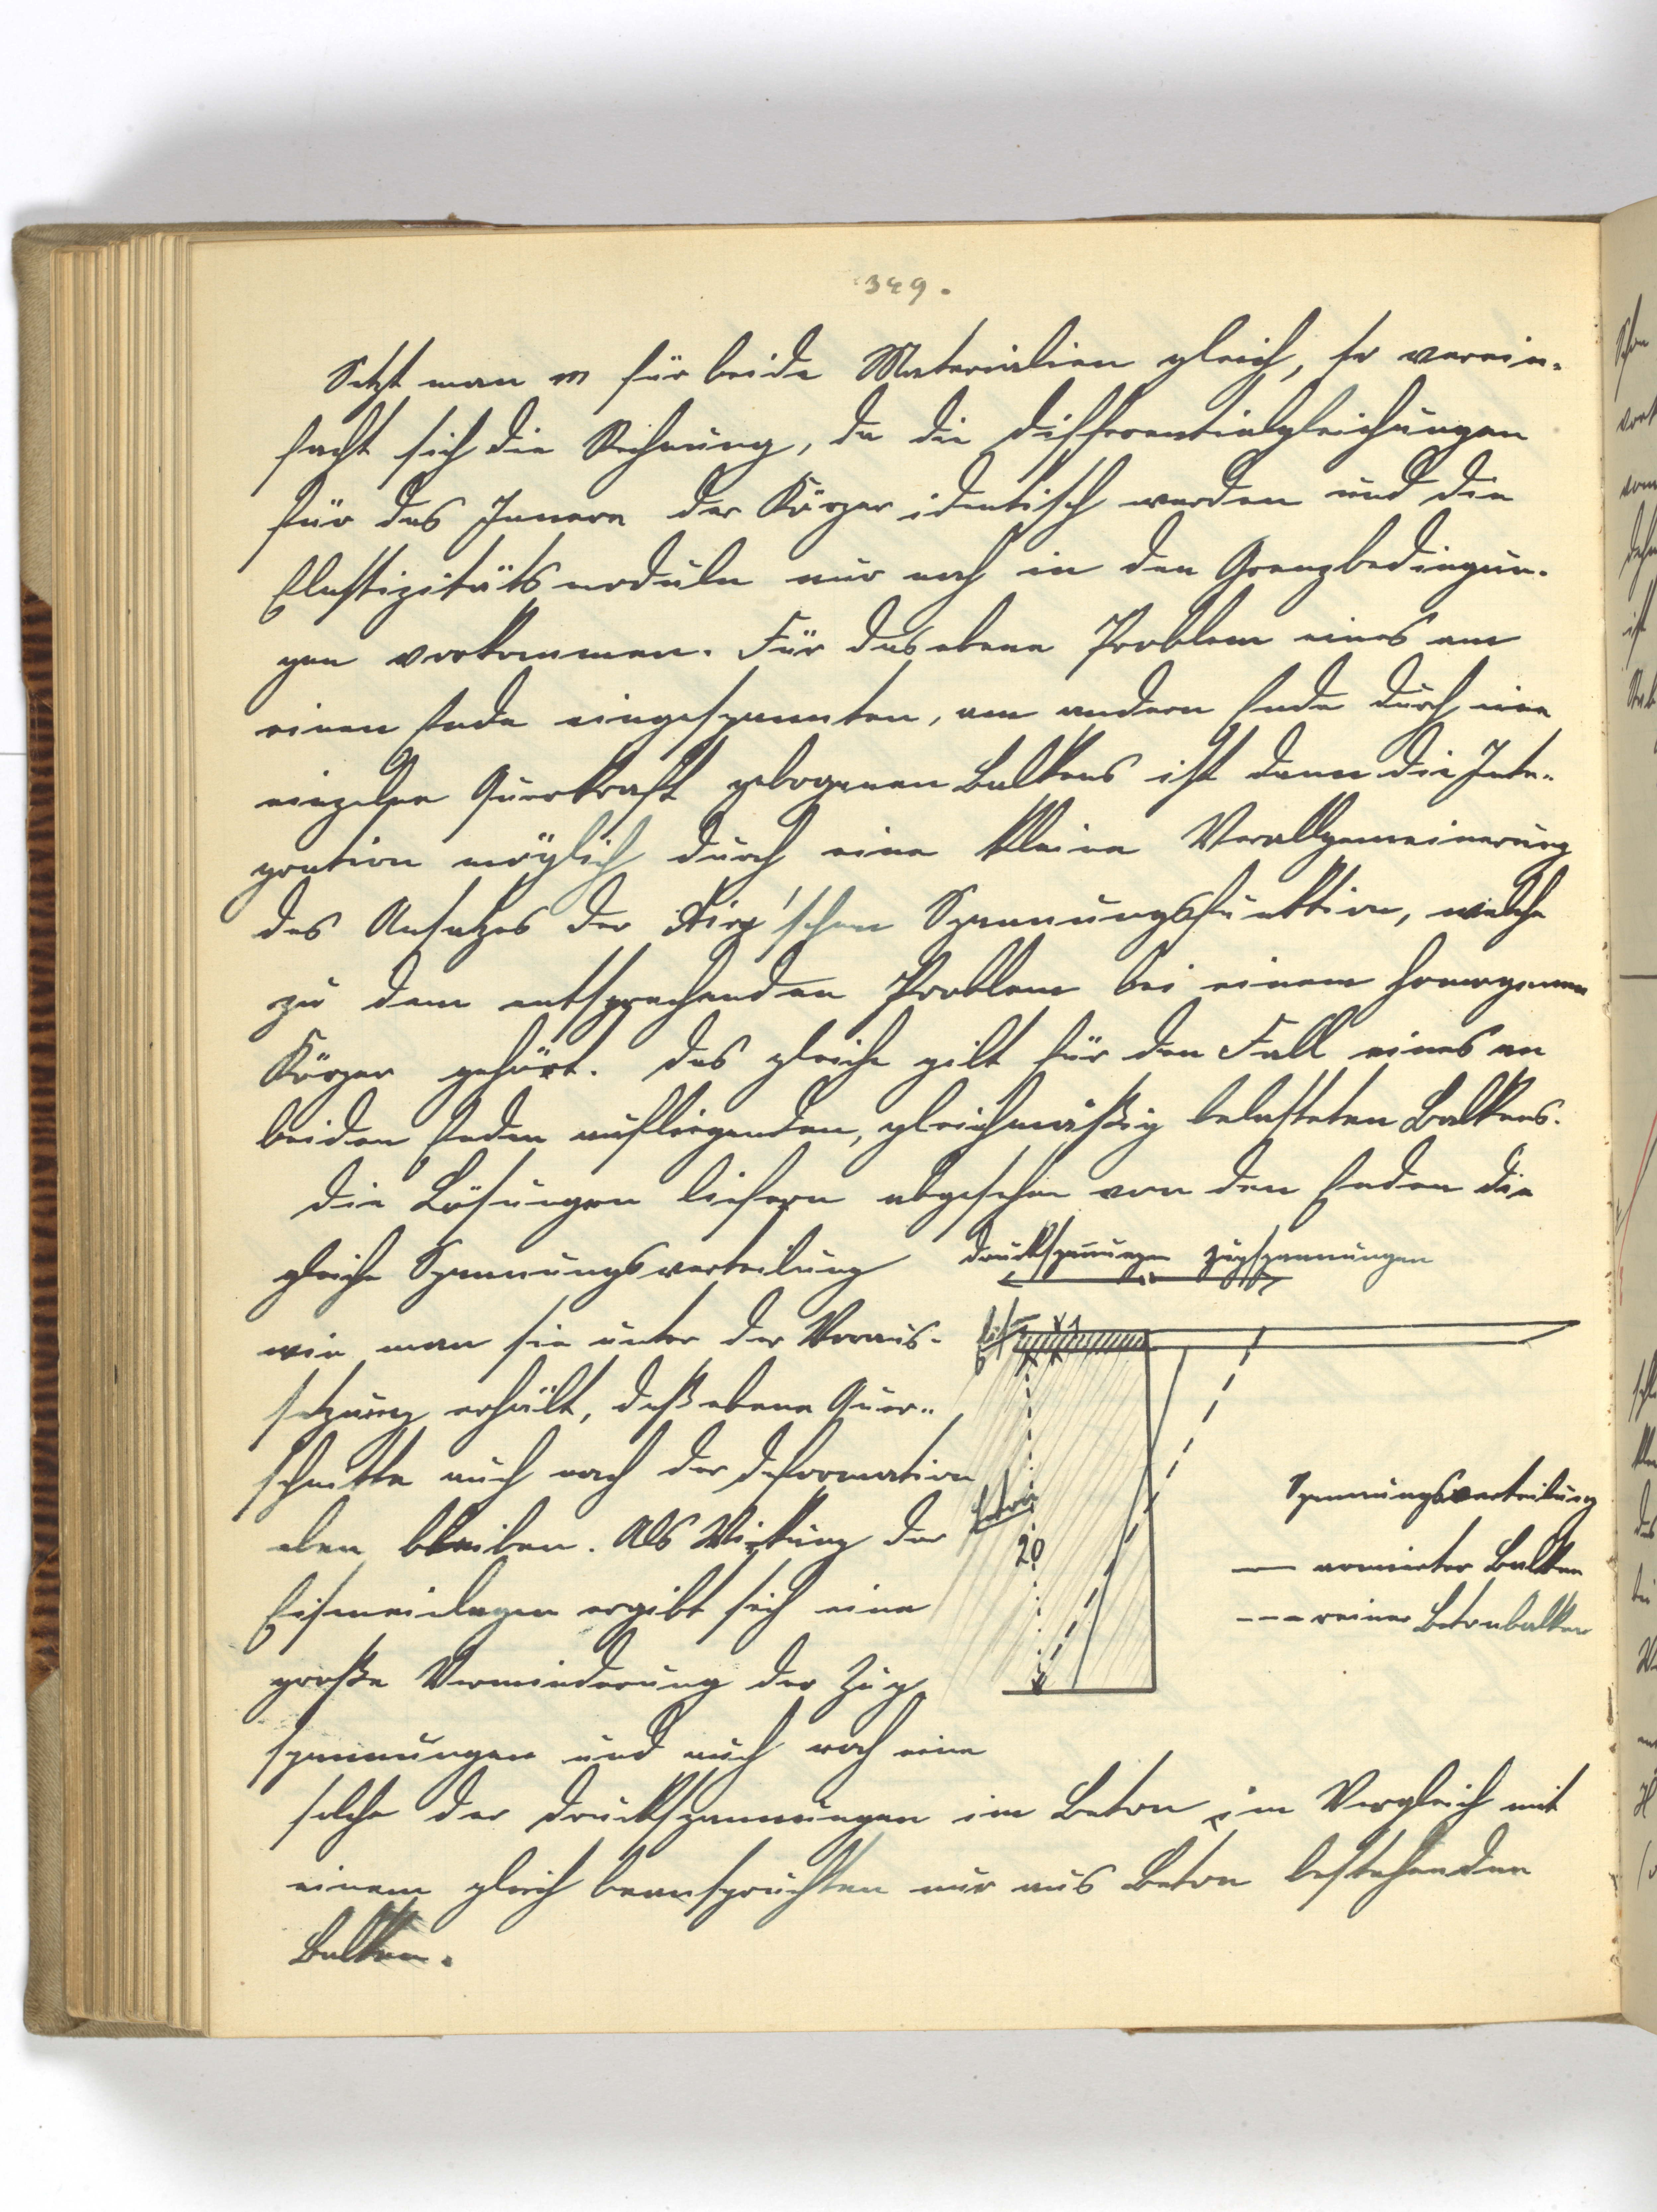 349.
Setzt man m für beide Materialien gleich, so verein-
facht sich die Rechnung, da die Differentialgleichungen
für das Innere der Körper identisch werden und die
Elastizitätsmoduln nur noch in den Grenzbedingun-
gen vorkommen. Für das ebene Problem eines am
einen Ende eingespannten, am andern Ende durch eine
einzelne Querkraft gebogenen Balkens ist dann die Inte-
gration möglich durch eine kleine Verallgemeinerung
des Ansatzes der Airy'schen Spannungsfunktion, welche
zu dem entsprechenden Problem bei einem homogenen
Körper gehört. Das gleiche gilt für den Fall eines an
beiden Enden aufliegenden, gleichmäßig belasteten Balkens.
Die Lösungen liefern abgesehen von den Enden die
gleiche Spannungsverteilung
wie man sie unter der Voraus-
setzung erhält, daß ebene Quer-
schnitte auch nach der Deformation
eben bleiben. Als Wirkung der
Eiseneinlagen ergibt sich eine
große Verminderung der Zug
spannungen und auch noch eine
solche der Druckspannungen im Beton im Vergleich mit
einem gleich beanspruchten nur aus Beton bestehenden
Balken.
Druckspannungen Zugspannungen
1
Beton
20
Spannungsverteilung
— armierter Balken
--- reiner Betonbalken